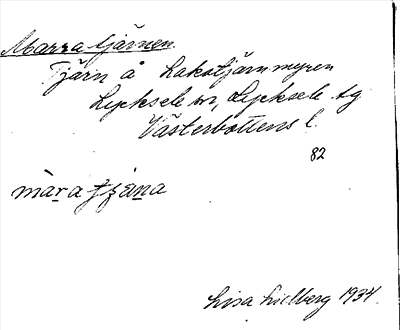 Marratjärnen.
Tjärn å Lakatjärnmyren
Lycksele sn, Lycksele tg
Västerbottens l.
82
màra tjæ̀na
Lisa Lidberg 1934.